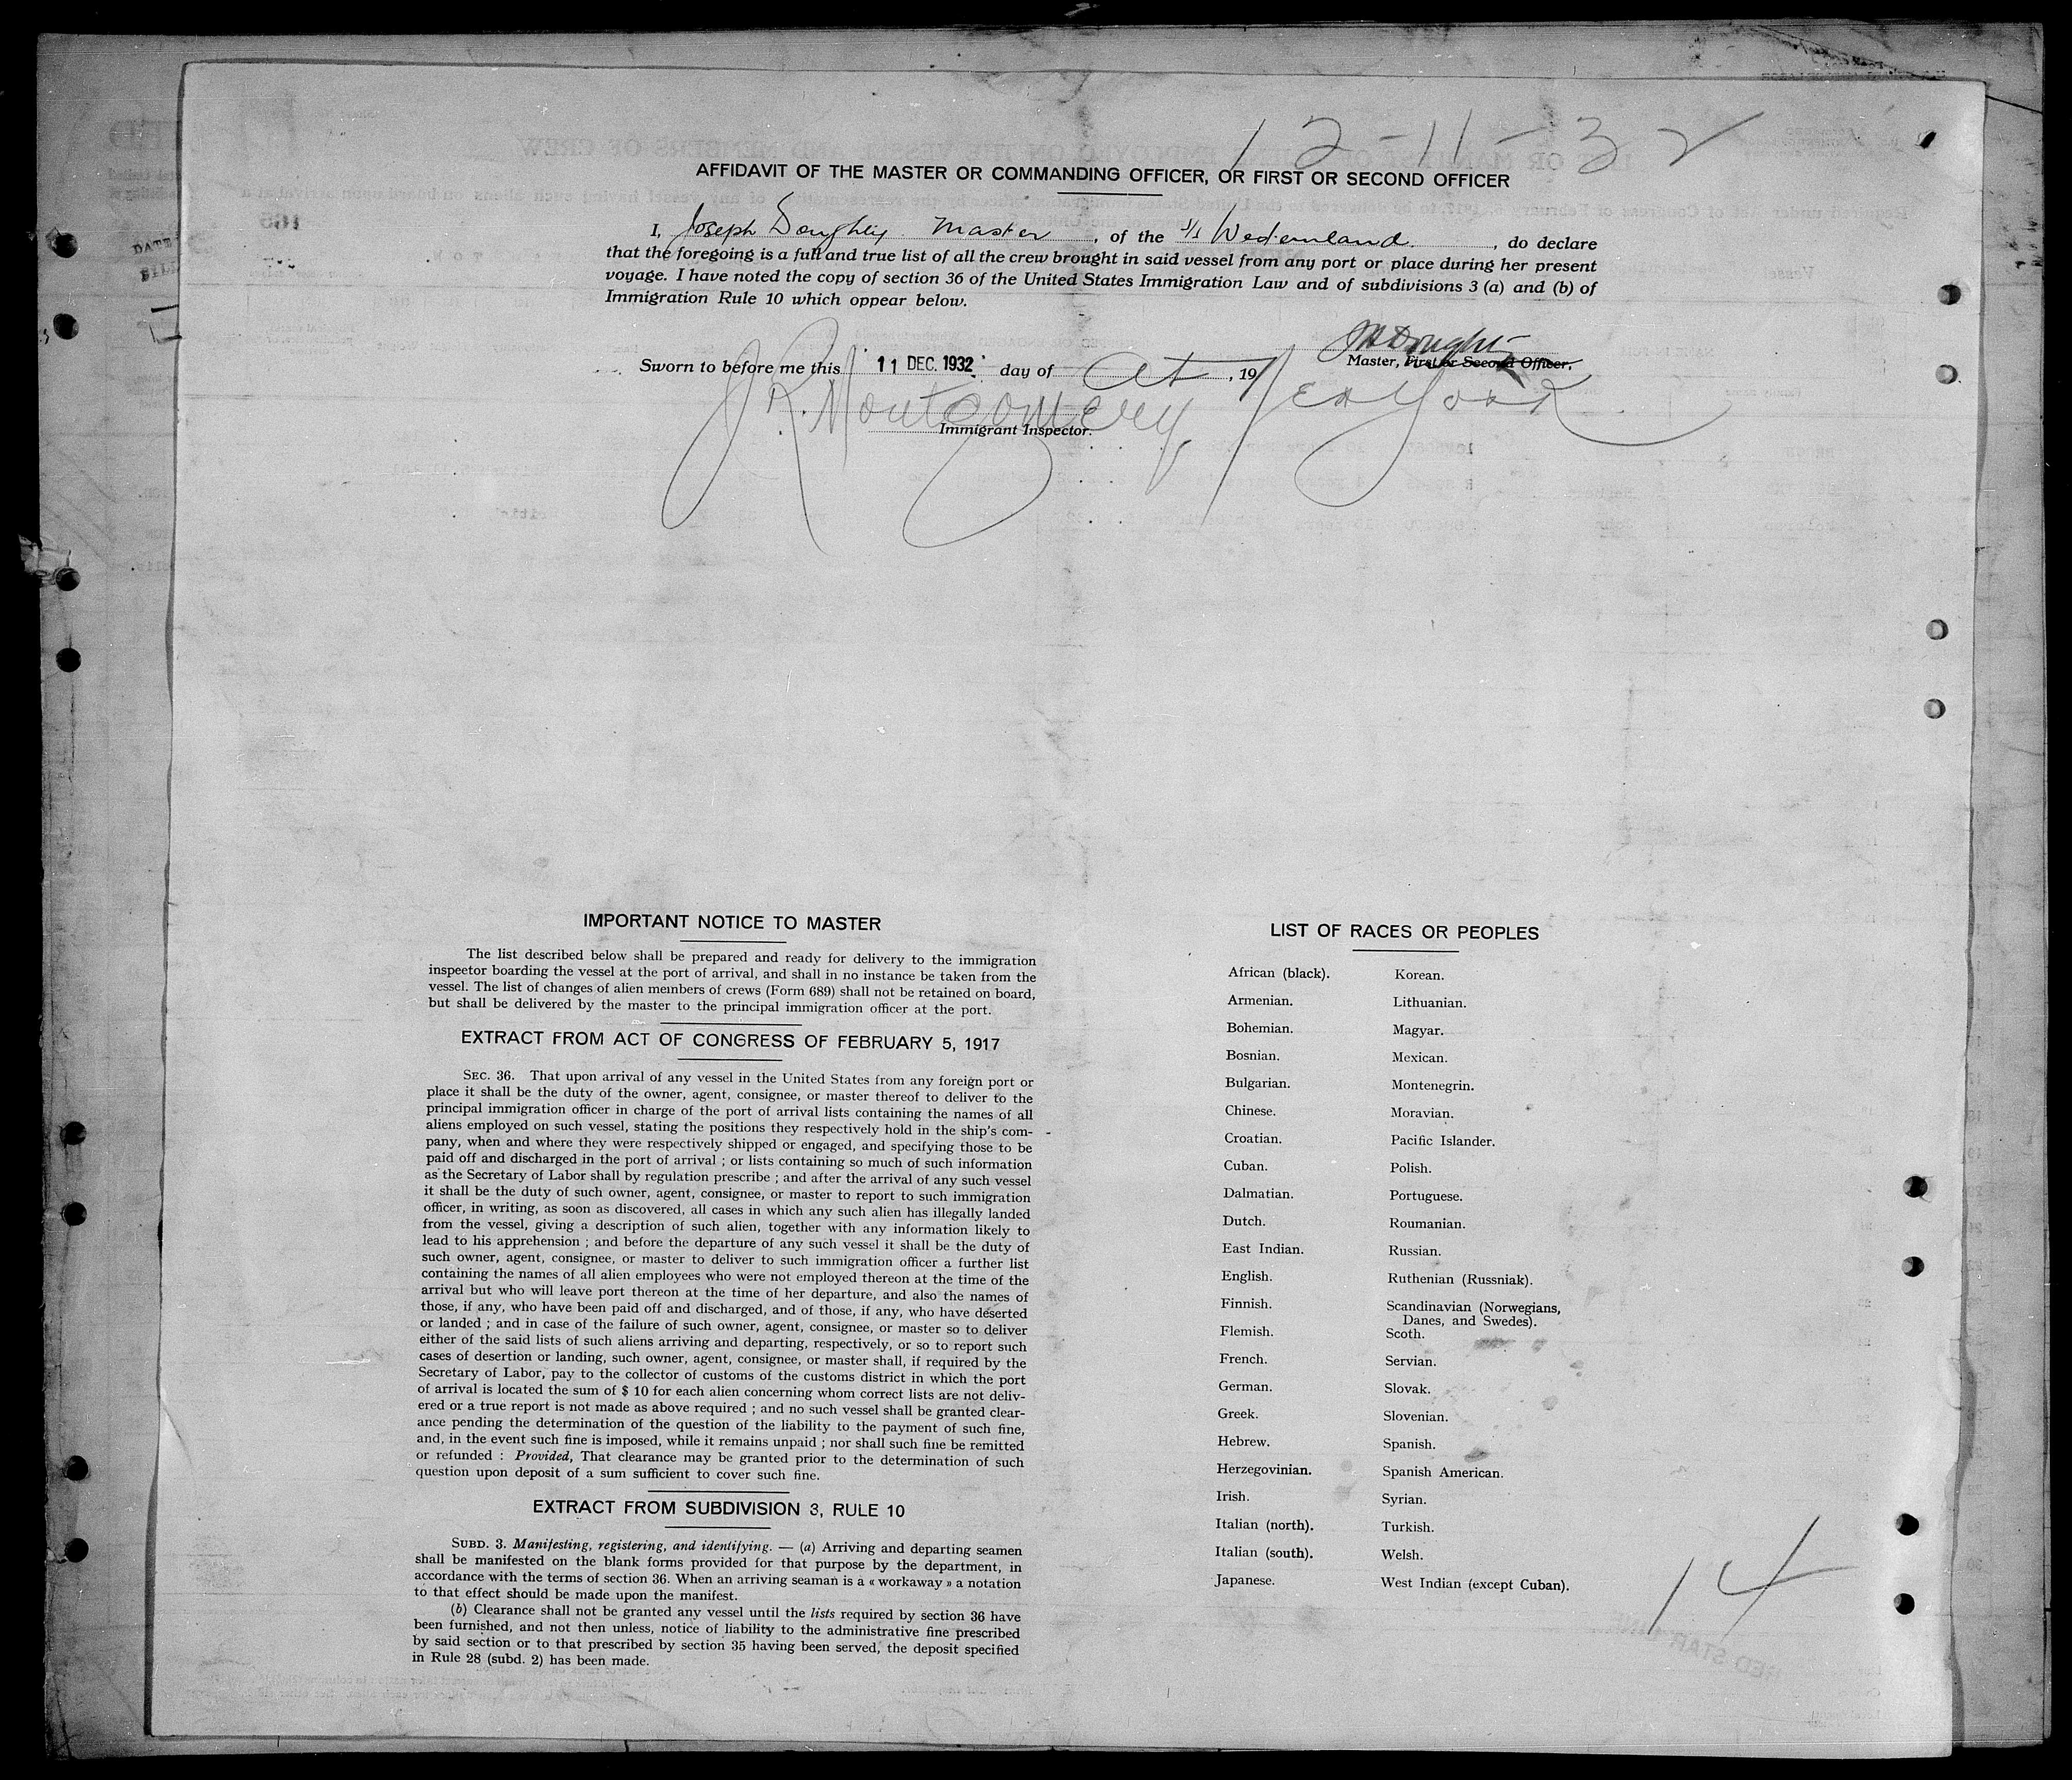 12-11-32
AFFIDAVIT OF THE MASTER OR COMMANDING OFFICER, OR FIRST OR SECOND OFFICER
I, Joseph Doughty Master, of the s/s Westernland, do declare
that the foregoing is a full and true list of all the crew brought in said vessel from any port or place during her present
voyage. I have noted the copy of section 36 of the United States Immigration Law and of subdivisions 3 (a) and (b) of
Immigration Rule 10 which oppear below.
Master, First or Second Officer.
Sworn to before me this 11 DEC. 1932 day of At, 19
J R. Montgomery New York
Immigrant Inspector.
IMPORTANT NOTICE TO MASTER
The list described below shall be prepared and ready for delivery to the immigration
inspeetor boarding the vessel at the port of arrival, and shall in no instance be taken from the
vessel. The list of changes of alien members of crews (Form 689) shall not be retained on board,
but shall be delivered by the master to the principal immigration officer at the port.
EXTRACT FROM ACT OF CONGRESS OF FEBRUARY 5, 1917
SEC. 36. That upon arrival of any vessel in the United States from any foreign port or
place it shall be the duty of the owner, agent, consignee, or master thereof to deliver to the
principal immigration officer in charge of the port of arrival lists containing the names of all
aliens employed on such vessel, stating the positions they respectively hold in the ship's com-
pany, when and where they were respectively shipped or engaged, and specifying those to be
paid off and discharged in the port of arrival ; or lists containing so much of such information
as the Secretary of Labor shall by regulation prescribe ; and after the arrival of any such vessel
it shall be the duty of such owner, agent, consignee, or master to report to such immigration
officer, in writing, as soon as discovered, all cases in which any such alien has illegally landed
from the vessel, giving a description of such alien, together with any information likely to
lead to his apprehension ; and before the departure of any such vessel it shall be the duty of
such owner, agent, consignee, or master to deliver to such immigration officer a further list
containing the names of all alien employees who were not employed thereon at the time of the
arrival but who will leave port thereon at the time of her departure, and also the names of
those, if any, who have been paid off and discharged, and of those, if any, who have deserted
or landed ; and in case of the failure of such owner, agent, consignee, or master so to deliver
either of the said lists of such aliens arriving and departing, respectively, or so to report such
cases of desertion or landing, such owner, agent, consignee, or master shall, if required by the
Secretary of Labor, pay to the collector of customs of the customs district in which the port
of arrival is located the sum of $ 10 for each alien concerning whom correct lists are not deliv-
ered or a true report is not made as above required ; and no such vessel shall be granted clear-
ance pending the determination of the question of the liability to the payment of such fine,
and, in the event such fine is imposed, while it remains unpaid ; nor shall such fine be remitted
or refunded : Provided, That clearance may be granted prior to the determination of such
question upon deposit of a sum sufficient to cover such fine.
EXTRACT FROM SUBDIVISION 3, RULE 10
SUBD. 3. Manifesting, registering, and identifying. — (a) Arriving and departing seamen
shall be manifested on the blank forms provided for that purpose by the department, in
accordance with the terms of section 36. When an arriving seaman is a « workaway » a notation
to that effect should be made upon the manifest.
(b) Clearance shall not be granted any vessel until the lists required by section 36 have
been furnished, and not then unless, notice of liability to the administrative fine prescribed
by said section or to that prescribed by section 35 having been served, the deposit specified
in Rule 28 (subd. 2) has been made.
LIST OF RACES OR PEOPLES
African (black). Korean.
Armenian. Lithuanian.
Bohemian. Magyar.
Bosnian. Mexican.
Bulgarian. Montenegrin.
Chinese. Moravian.
Croatian. Pacific Islander.
Cuban. Polish.
Dalmatian. Portuguese.
Dutch. Roumanian.
East Indian. Russian.
English. Ruthenian (Russniak).
Finnish. Scandinavian (Norwegians,
Danes, and Swedes).
Flemish. Scoth.
French. Servian.
German. Slovak.
Greek. Slovenian.
Hebrew. Spanish.
Herzegovinian. Spanish American.
Irish. Syrian.
Italian (north). Turkish.
Italian (south). Welsh.
Japanese. West Indian (except Cuban).
14